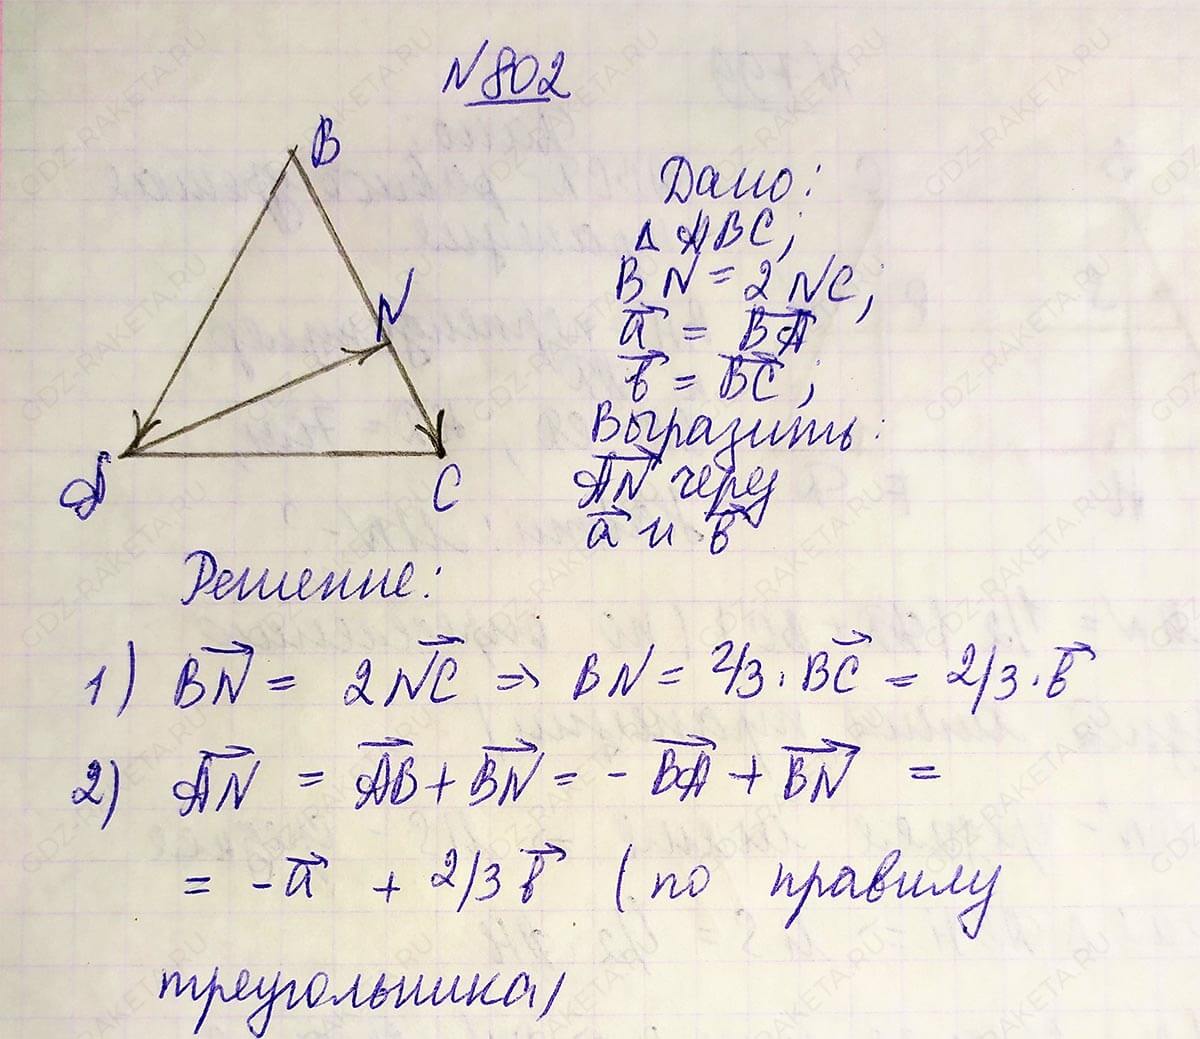 N802
B
Дано:
△ABC;
BN = 2NC;
a⃗ = BA⃗
N
b⃗ = BC⃗;
Выразить:
AN⃗ через
A
C
a⃗ и b⃗
Решение:
1) BN⃗ = 2NC⃗ => BN = 2/3 · BC⃗ = 2/3 · b⃗
2) AN⃗ = AB⃗ + BN⃗ = -BA⃗ + BN⃗ =
= -a⃗ + 2/3 b⃗ (по правилу
треугольника)
GDZ-RAKETA.RU